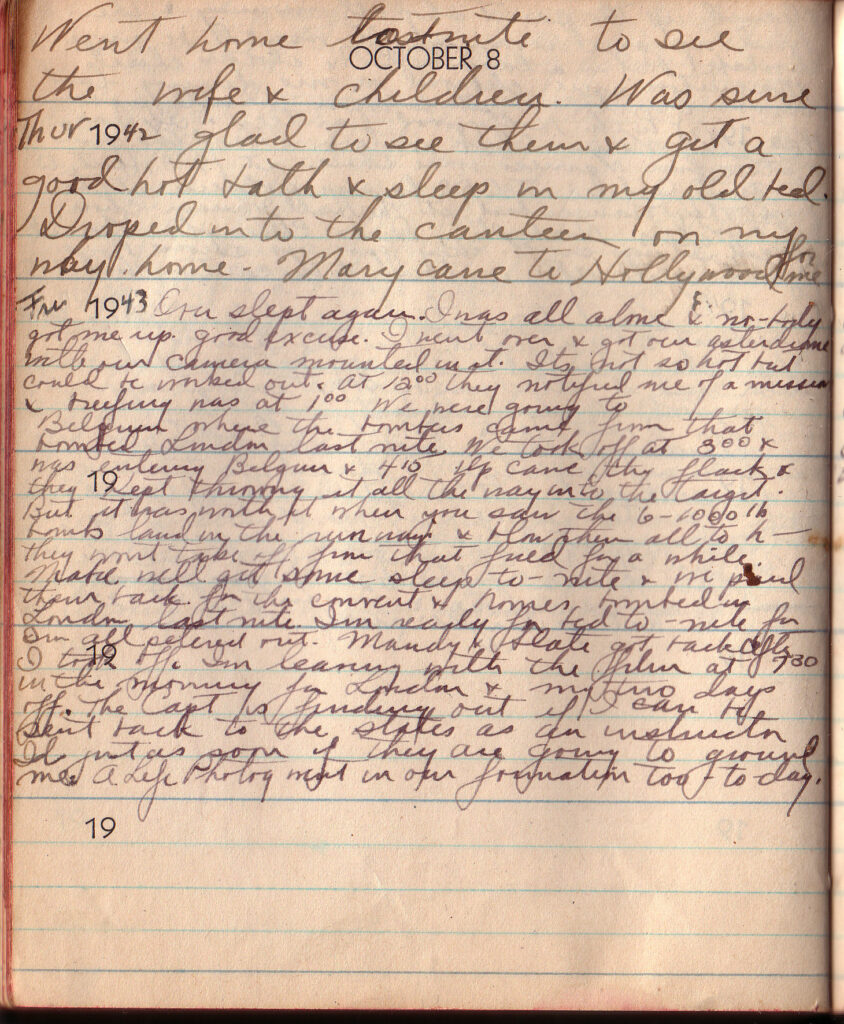 Went home last nite to see
OCTOBER 8
the wife & children. Was sure
Thur 1942 glad to see them & get a
good hot bath & sleep in my old bed.
Droped into the canteen on my
way home - Mary came to Hollywood for me
Fri 1943 Over slept again. I was all alone & no-body
got me up. good excuse. I went over & got our asterdrome
with our camera mounted in it. Its not so hot but
could be worked out. At 12:00 they notified me of a mission
& breefing was at 1:00 We were going to
Belgium where the bombers came from that
bombed London last nite. We took off at 3:00 &
was entering Belgium & 4:10 up came the flack &
19
they kept throwing it all the way into the target.
But it was worth it when you saw the 6-1000 lb
bombs land in the runway & blow them all to h—
they wont take off from that field for a while.
Maybe will get some sleep to-nite & we paid
them back for the convent & homes bombed in
London last nite. I'm ready for bed to-nite for
I'm all petered out. Mandy & Slate got back after
19
I took off. I'm leaving with the film at 7:30
in the morning for London & my two days
off. The Capt is finding out if I can be
sent back to the states as an instructor
I'd just as soon if they are going to ground
me. A Life Photog went in our formation too to-day.
19